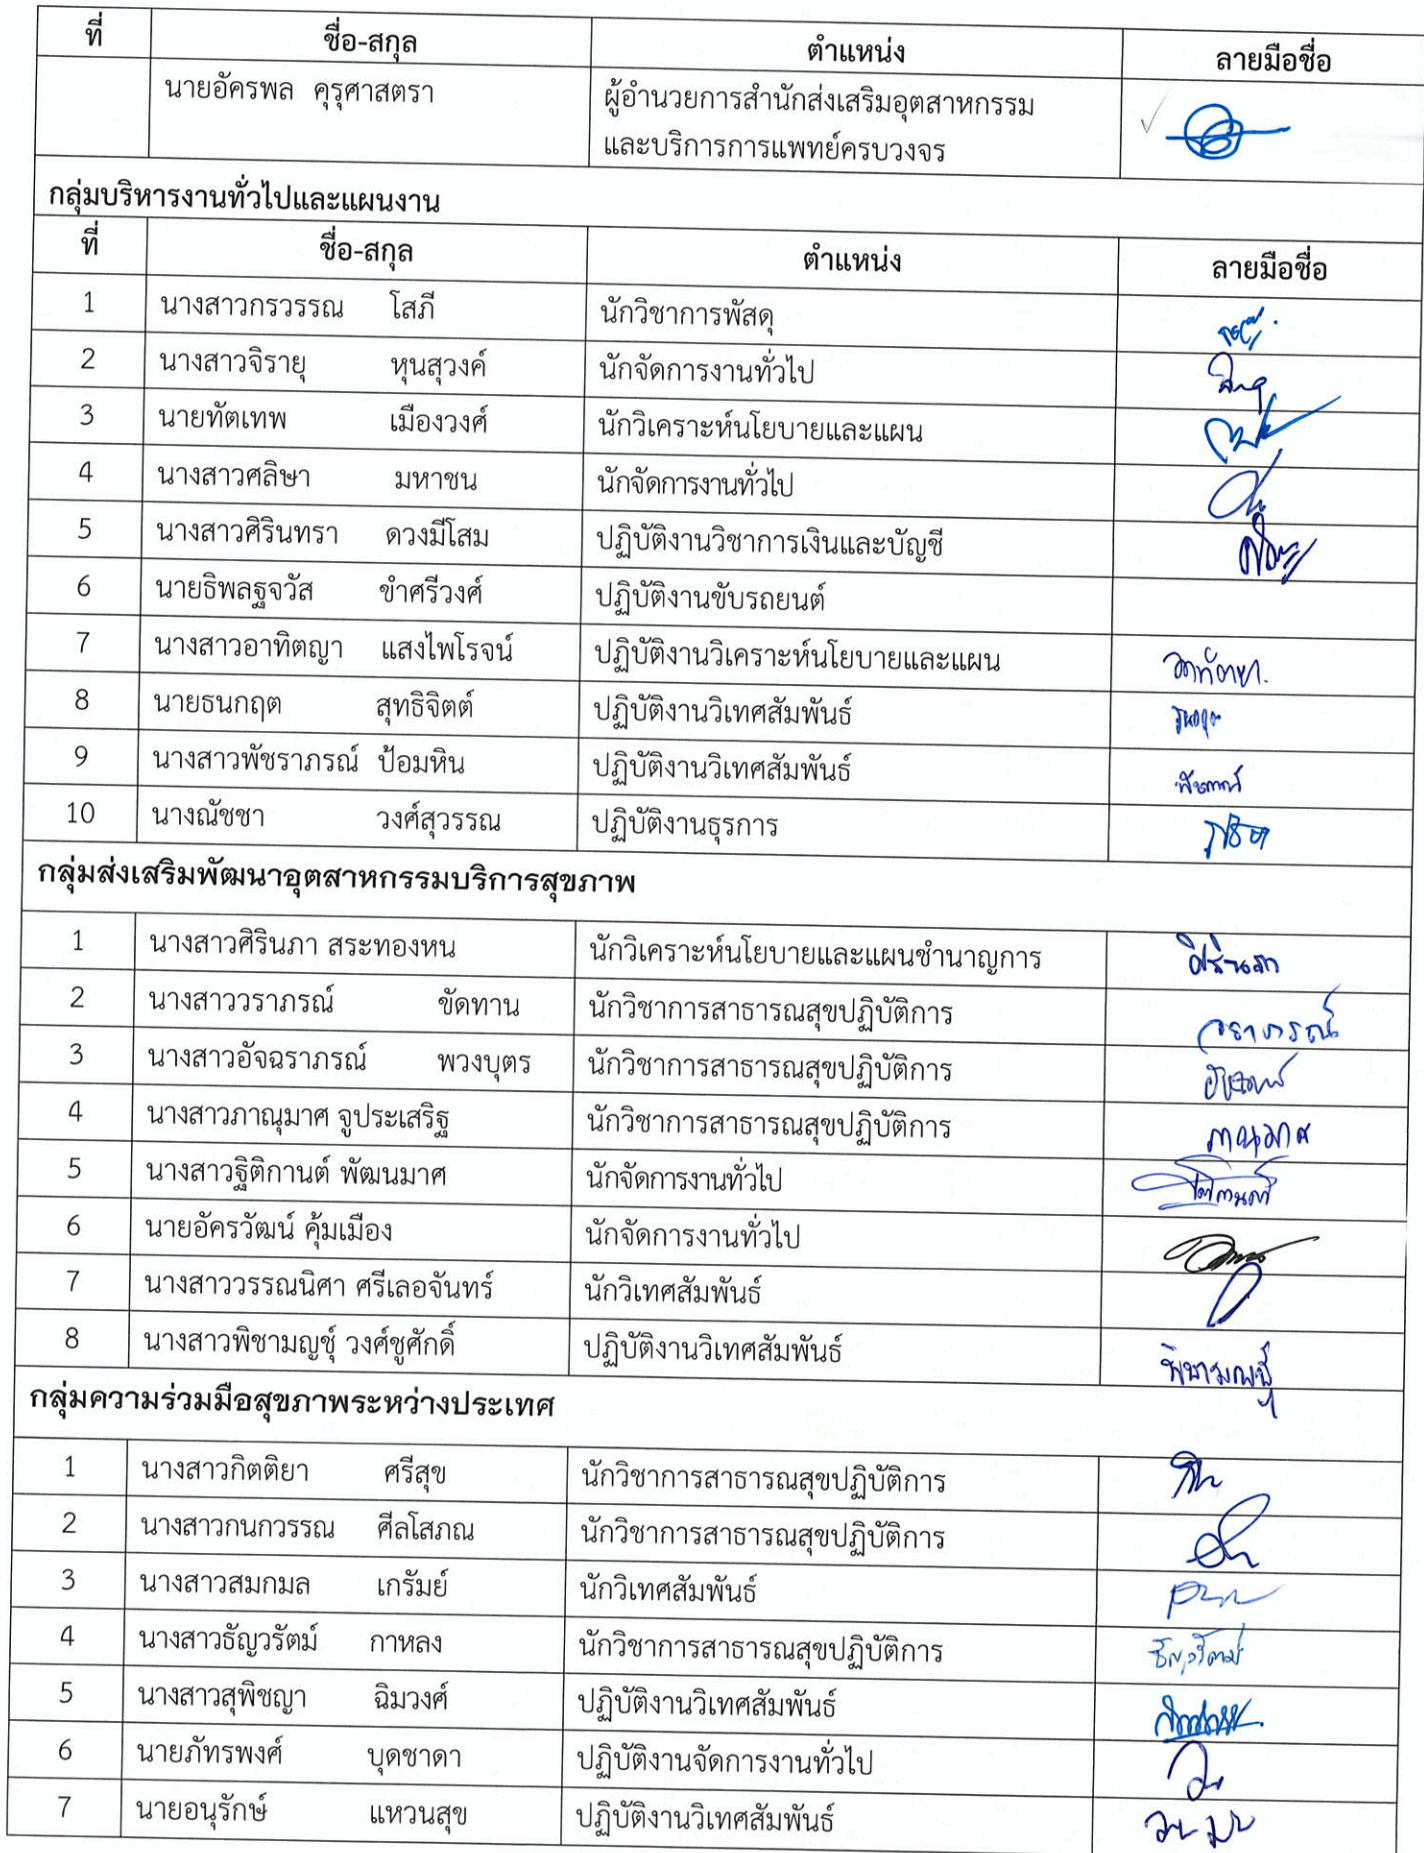 ที่ ชื่อ-สกุล ตำแหน่ง ลายมือชื่อ
นายอัครพล คุรุศาสตรา ผู้อำนวยการสำนักส่งเสริมอุตสาหกรรม
และบริการการแพทย์ครบวงจร
กลุ่มบริหารงานทั่วไปและแผนงาน
ที่ ชื่อ-สกุล ตำแหน่ง ลายมือชื่อ
1 นางสาวกรวรรณ โสภี นักวิชาการพัสดุ
2 นางสาวจิรายุ หุนสุวงค์ นักจัดการงานทั่วไป
3 นายทัตเทพ เมืองวงศ์ นักวิเคราะห์นโยบายและแผน
4 นางสาวศลิษา มหาชน นักจัดการงานทั่วไป
5 นางสาวศิรินทรา ดวงมีโสม ปฏิบัติงานวิชาการเงินและบัญชี
6 นายธิพลฐจวัส ขำศรีวงศ์ ปฏิบัติงานขับรถยนต์
7 นางสาวอาทิตญา แสงไพโรจน์ ปฏิบัติงานวิเคราะห์นโยบายและแผน
8 นายธนกฤต สุทธิจิตต์ ปฏิบัติงานวิเทศสัมพันธ์
9 นางสาวพัชราภรณ์ ป้อมหิน ปฏิบัติงานวิเทศสัมพันธ์
10 นางณัชชา วงศ์สุวรรณ ปฏิบัติงานธุรการ
กลุ่มส่งเสริมพัฒนาอุตสาหกรรมบริการสุขภาพ
1 นางสาวศิรินภา สระทองหน นักวิเคราะห์นโยบายและแผนชำนาญการ ศิรินภา
2 นางสาววราภรณ์ ขัดทาน นักวิชาการสาธารณสุขปฏิบัติการ วราภรณ์
3 นางสาวอัจฉราภรณ์ พวงบุตร นักวิชาการสาธารณสุขปฏิบัติการ
4 นางสาวภาณุมาศ จูประเสริฐ นักวิชาการสาธารณสุขปฏิบัติการ ภาณุมาศ
5 นางสาวฐิติกานต์ พัฒนมาศ นักจัดการงานทั่วไป
6 นายอัครวัฒน์ คุ้มเมือง นักจัดการงานทั่วไป
7 นางสาววรรณนิศา ศรีเลอจันทร์ นักวิเทศสัมพันธ์
8 นางสาวพิชามญชุ์ วงศ์ชูศักดิ์ ปฏิบัติงานวิเทศสัมพันธ์ พิชามญชุ์
กลุ่มความร่วมมือสุขภาพระหว่างประเทศ
1 นางสาวกิตติยา ศรีสุข นักวิชาการสาธารณสุขปฏิบัติการ
2 นางสาวกนกวรรณ ศีลโสภณ นักวิชาการสาธารณสุขปฏิบัติการ
3 นางสาวสมกมล เกรัมย์ นักวิเทศสัมพันธ์
4 นางสาวธัญวรัตม์ กาหลง นักวิชาการสาธารณสุขปฏิบัติการ ธัญวรัตม์
5 นางสาวสุพิชญา ฉิมวงศ์ ปฏิบัติงานวิเทศสัมพันธ์
6 นายภัทรพงศ์ บุดชาดา ปฏิบัติงานจัดการงานทั่วไป
7 นายอนุรักษ์ แหวนสุข ปฏิบัติงานวิเทศสัมพันธ์